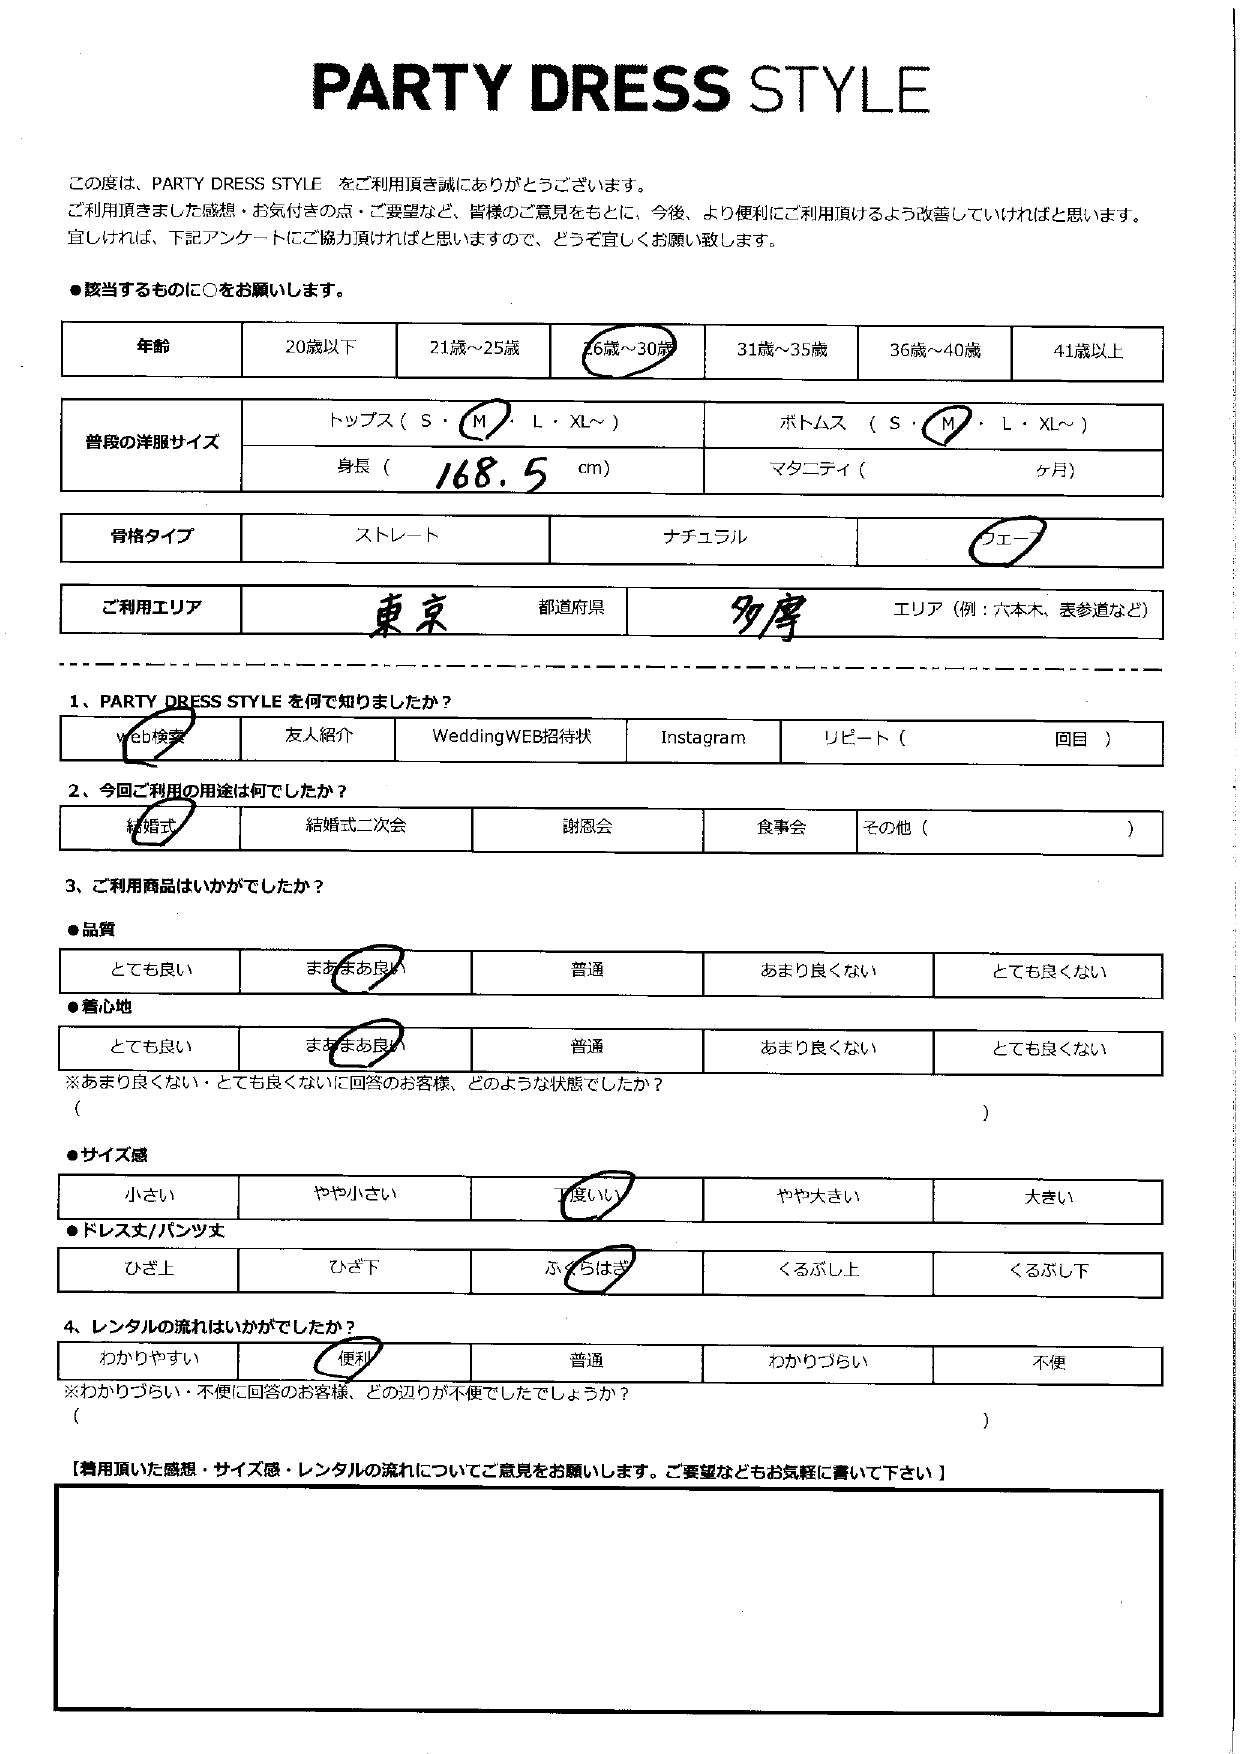 PARTY DRESS STYLE
この度は、PARTY DRESS STYLE をご利用頂き誠にありがとうございます。
ご利用頂きました感想・お気付きの点・ご要望など、皆様のご意見をもとに、今後、より便利にご利用頂けるよう改善していければと思います。
宜しければ、下記アンケートにご協力頂ければと思いますので、どうぞ宜しくお願い致します。
●該当するものに○をお願いします。
年齢 20歳以下 21歳～25歳 26歳～30歳 31歳～35歳 36歳～40歳 41歳以上
普段の洋服サイズ トップス ( S ・ M ・ L ・ XL～ ) ボトムス ( S ・ M ・ L ・ XL～ )
身長 ( 168.5 cm) マタニティ ( ヶ月)
骨格タイプ ストレート ナチュラル ウェーブ
ご利用エリア 東京 都道府県 多摩 エリア（例：六本木、表参道など）
1、PARTY DRESS STYLE を何で知りましたか？
web検索 友人紹介 WeddingWEB招待状 Instagram リピート ( 回目 )
2、今回ご利用の用途は何でしたか？
結婚式 結婚式二次会 謝恩会 食事会 その他 ( )
3、ご利用商品はいかがでしたか？
●品質
とても良い まあまあ良い 普通 あまり良くない とても良くない
●着心地
とても良い まあまあ良い 普通 あまり良くない とても良くない
※あまり良くない・とても良くないに回答のお客様、どのような状態でしたか？
( )
●サイズ感
小さい やや小さい 丁度いい やや大きい 大きい
●ドレス丈/パンツ丈
ひざ上 ひざ下 ふくらはぎ くるぶし上 くるぶし下
4、レンタルの流れはいかがでしたか？
わかりやすい 便利 普通 わかりづらい 不便
※わかりづらい・不便に回答のお客様、どの辺りが不便でしたでしょうか？
( )
【着用頂いた感想・サイズ感・レンタルの流れについてご意見をお願いします。ご要望などもお気軽に書いて下さい 】